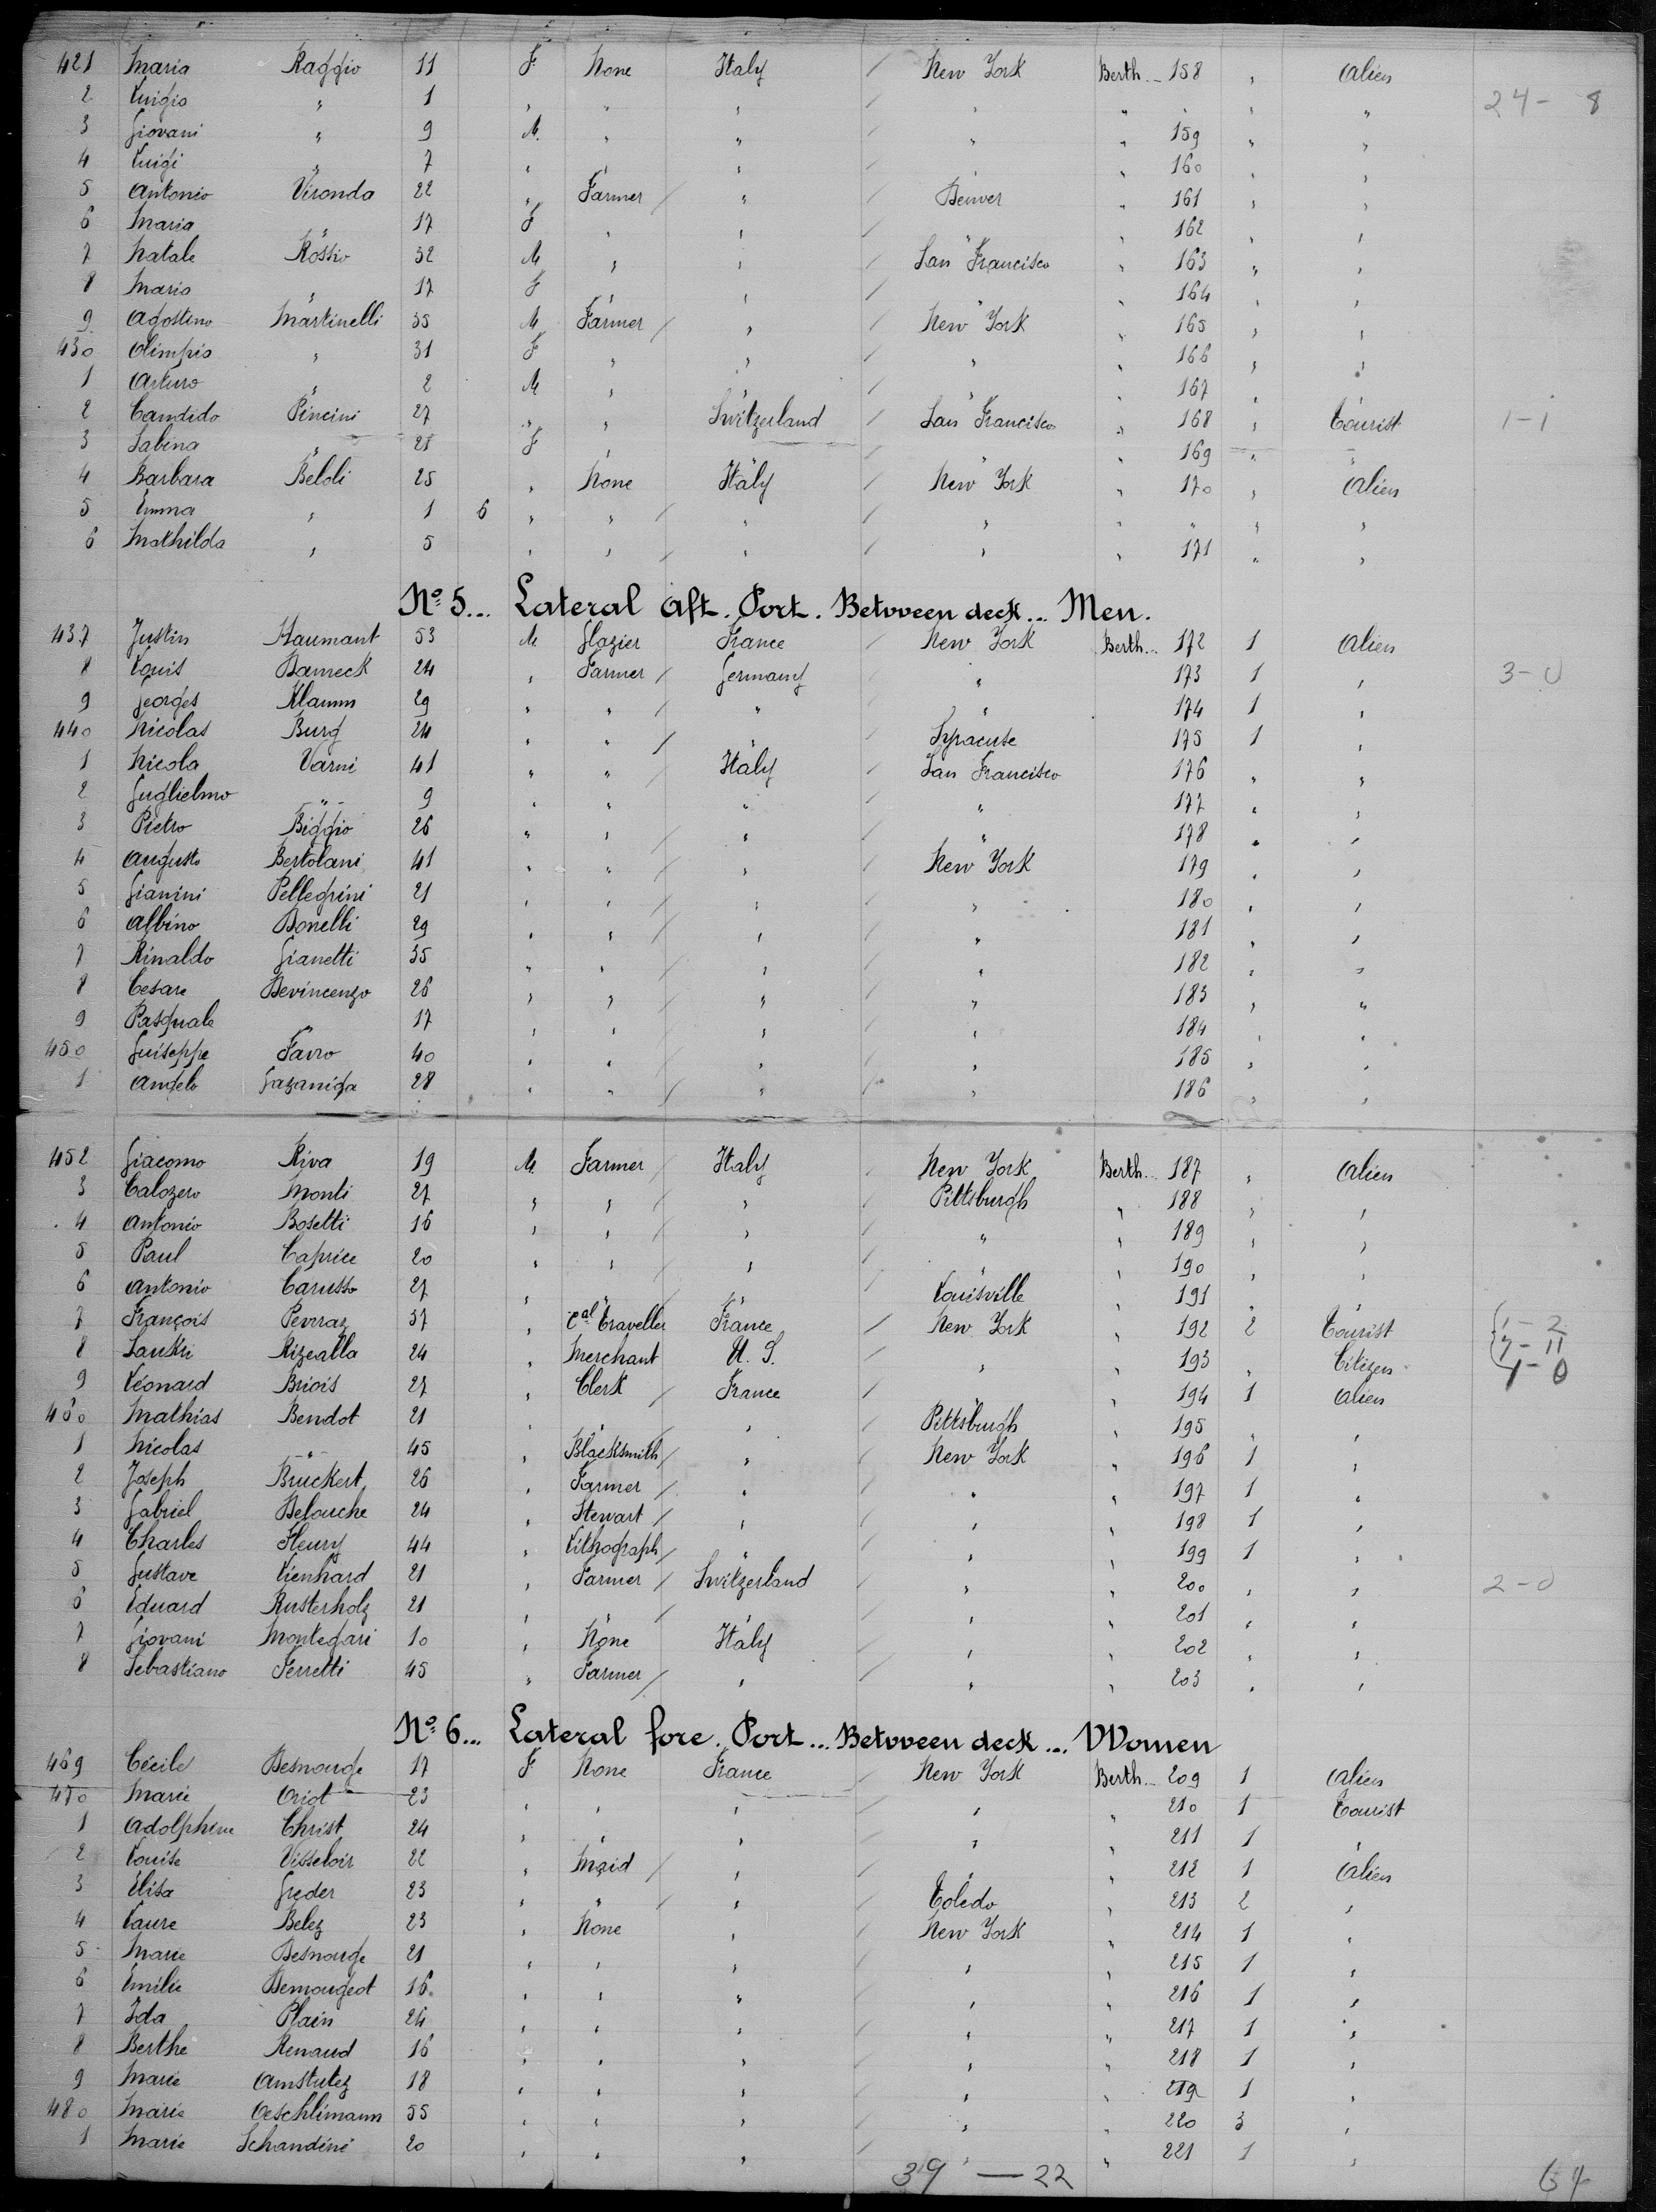 421 Maria Raggio 11 F. None Italy / New York Berth.. 158 " Alien
2 Luigia " 1 " " " / " " " " " 24- 8
3 Giovani " 9 M. " " / " " 159 " "
4 Luigi " 7 " " " / " " 160 " "
5 Antonio Vironda 22 " Farmer / " / Denver " 161 " "
6 Maria " 17 F " " / " " 162 " "
7 Natale 32 M " " / San Francisco " 163 " "
8 Maria " 17 F " " / " " 164 " "
9 Agostino Martinelli 35 M Farmer / " / New York " 165 " "
430 Olimpia " 31 F " " / " " 166 " "
1 Arturo " 2 M " " / " " 167 " "
2 Candido Pincini 27 " " Switzerland / San Francisco " 168 " Tourist 1-1
3 Sabina " 21 F " " / " " 169 " "
4 Barbara Beloli 25 " None Italy / New York " 170 " Alien
5 Emma " 1 6 " " / " / " " " " "
6 Mathilda " 5 " " / " / " " 171 " "
No 5... Lateral aft. Port. Between deck... Men.
437 Justin Haumant 53 M. Glazier France / New York Berth.. 172 1 Alien
8 Louis Bameck 24 " Farmer / Germany " 173 1 " 3-0
9 Georges Klamm 29 " " / " / " 174 1 "
440 Nicolas Burg 24 " " / " Syracuse 175 1 "
1 Nicola Varni 41 " " / Italy / San Francisco 176 " "
2 Guglielmo " 9 " " " / " 177 " "
3 Pietro Biggio 26 " " / " / " 178 " "
4 Augusto Bertolani 41 " " / " / New York 179 " "
5 Gianini Pellegrini 21 " " / " / " 180 " "
6 Albino Bonelli 29 " " / " / " 181 " "
7 Rinaldo Gianetti 35 " " / " / " 182 " "
8 Cesare Devincenzo 26 " " / " / " 183 " "
9 Pasquale " 17 " " / " / " 184 " "
450 Guiseppe Favro 40 " " / " / " 185 " "
1 Angelo Gazaniga 28 " " / " / " 186 " "
452 Giacomo Riva 19 M. Farmer / Italy / New York Berth.. 187 " Alien
3 Calozero Monti 27 " " / " / Pittsburgh " 188 " "
4 Antonio Bosetti 16 " " / " / " " 189 " "
5 Paul Caprice 20 " " / " / " " 190 " "
6 Antonio Carusso 27 " " / " / Louisville " 191 " "
7 François Pevraz 37 " Cal Traveller France / New York " 192 2 Tourist 1-2
8 Rizealla 24 " Merchant U. S. / " " 193 " Citizen 7-11
9 Léonard Briois 27 " Clerk / France / " " 194 1 Alien 7-0
460 Mathias Bendot 21 " " / " / Pittsburgh " 195 " "
1 Nicolas " 45 " Blacksmith / " / New York " 196 1 "
2 Joseph Bruckert 26 " Farmer / " / " " 197 1 "
3 Gabriel Belouche 24 " Stewart / " / " " 198 1 "
4 Charles Fleury 44 " Lithograph / " / " " 199 1 "
5 Gustave Lienhard 21 " Farmer / Switzerland / " " 200 " " 2-0
6 Eduard Rusterholz 21 " " / " / " " 201 " "
7 Giovani Montegari 10 " None Italy / " " 202 " "
8 Sebastiano Ferretti 45 " Farmer / " / " " 203 " "
No 6... Lateral fore. Port... Between deck... Women
469 Cécile Besnouge 17 F None France / New York Berth.. 209 1 Alien
470 Marie Oriot 23 " " " / " " 210 1 Tourist
1 Adolphine Christ 24 " " " / " " 211 1 "
2 Louise Visseloir 22 " Maid / " / " " 212 1 Alien
3 Elisa Greder 23 " " / " / Toledo " 213 2 "
4 Laure Belez 23 " None " / New York " 214 1 "
5 Marie Besnouge 21 " " " / " " 215 1 "
6 Emilie Demougeot 16 " " " / " " 216 1 "
7 Ida Plain 24 " " " / " " 217 1 "
8 Berthe Renaud 16 " " " / " " 218 1 "
9 Marie Amstutez 18 " " " / " " 219 1 "
480 Marie Oeschlimann 55 " " " / " " 220 3 "
1 Marie Schandini 20 " " " / " " 221 1 "
39 — 22
64